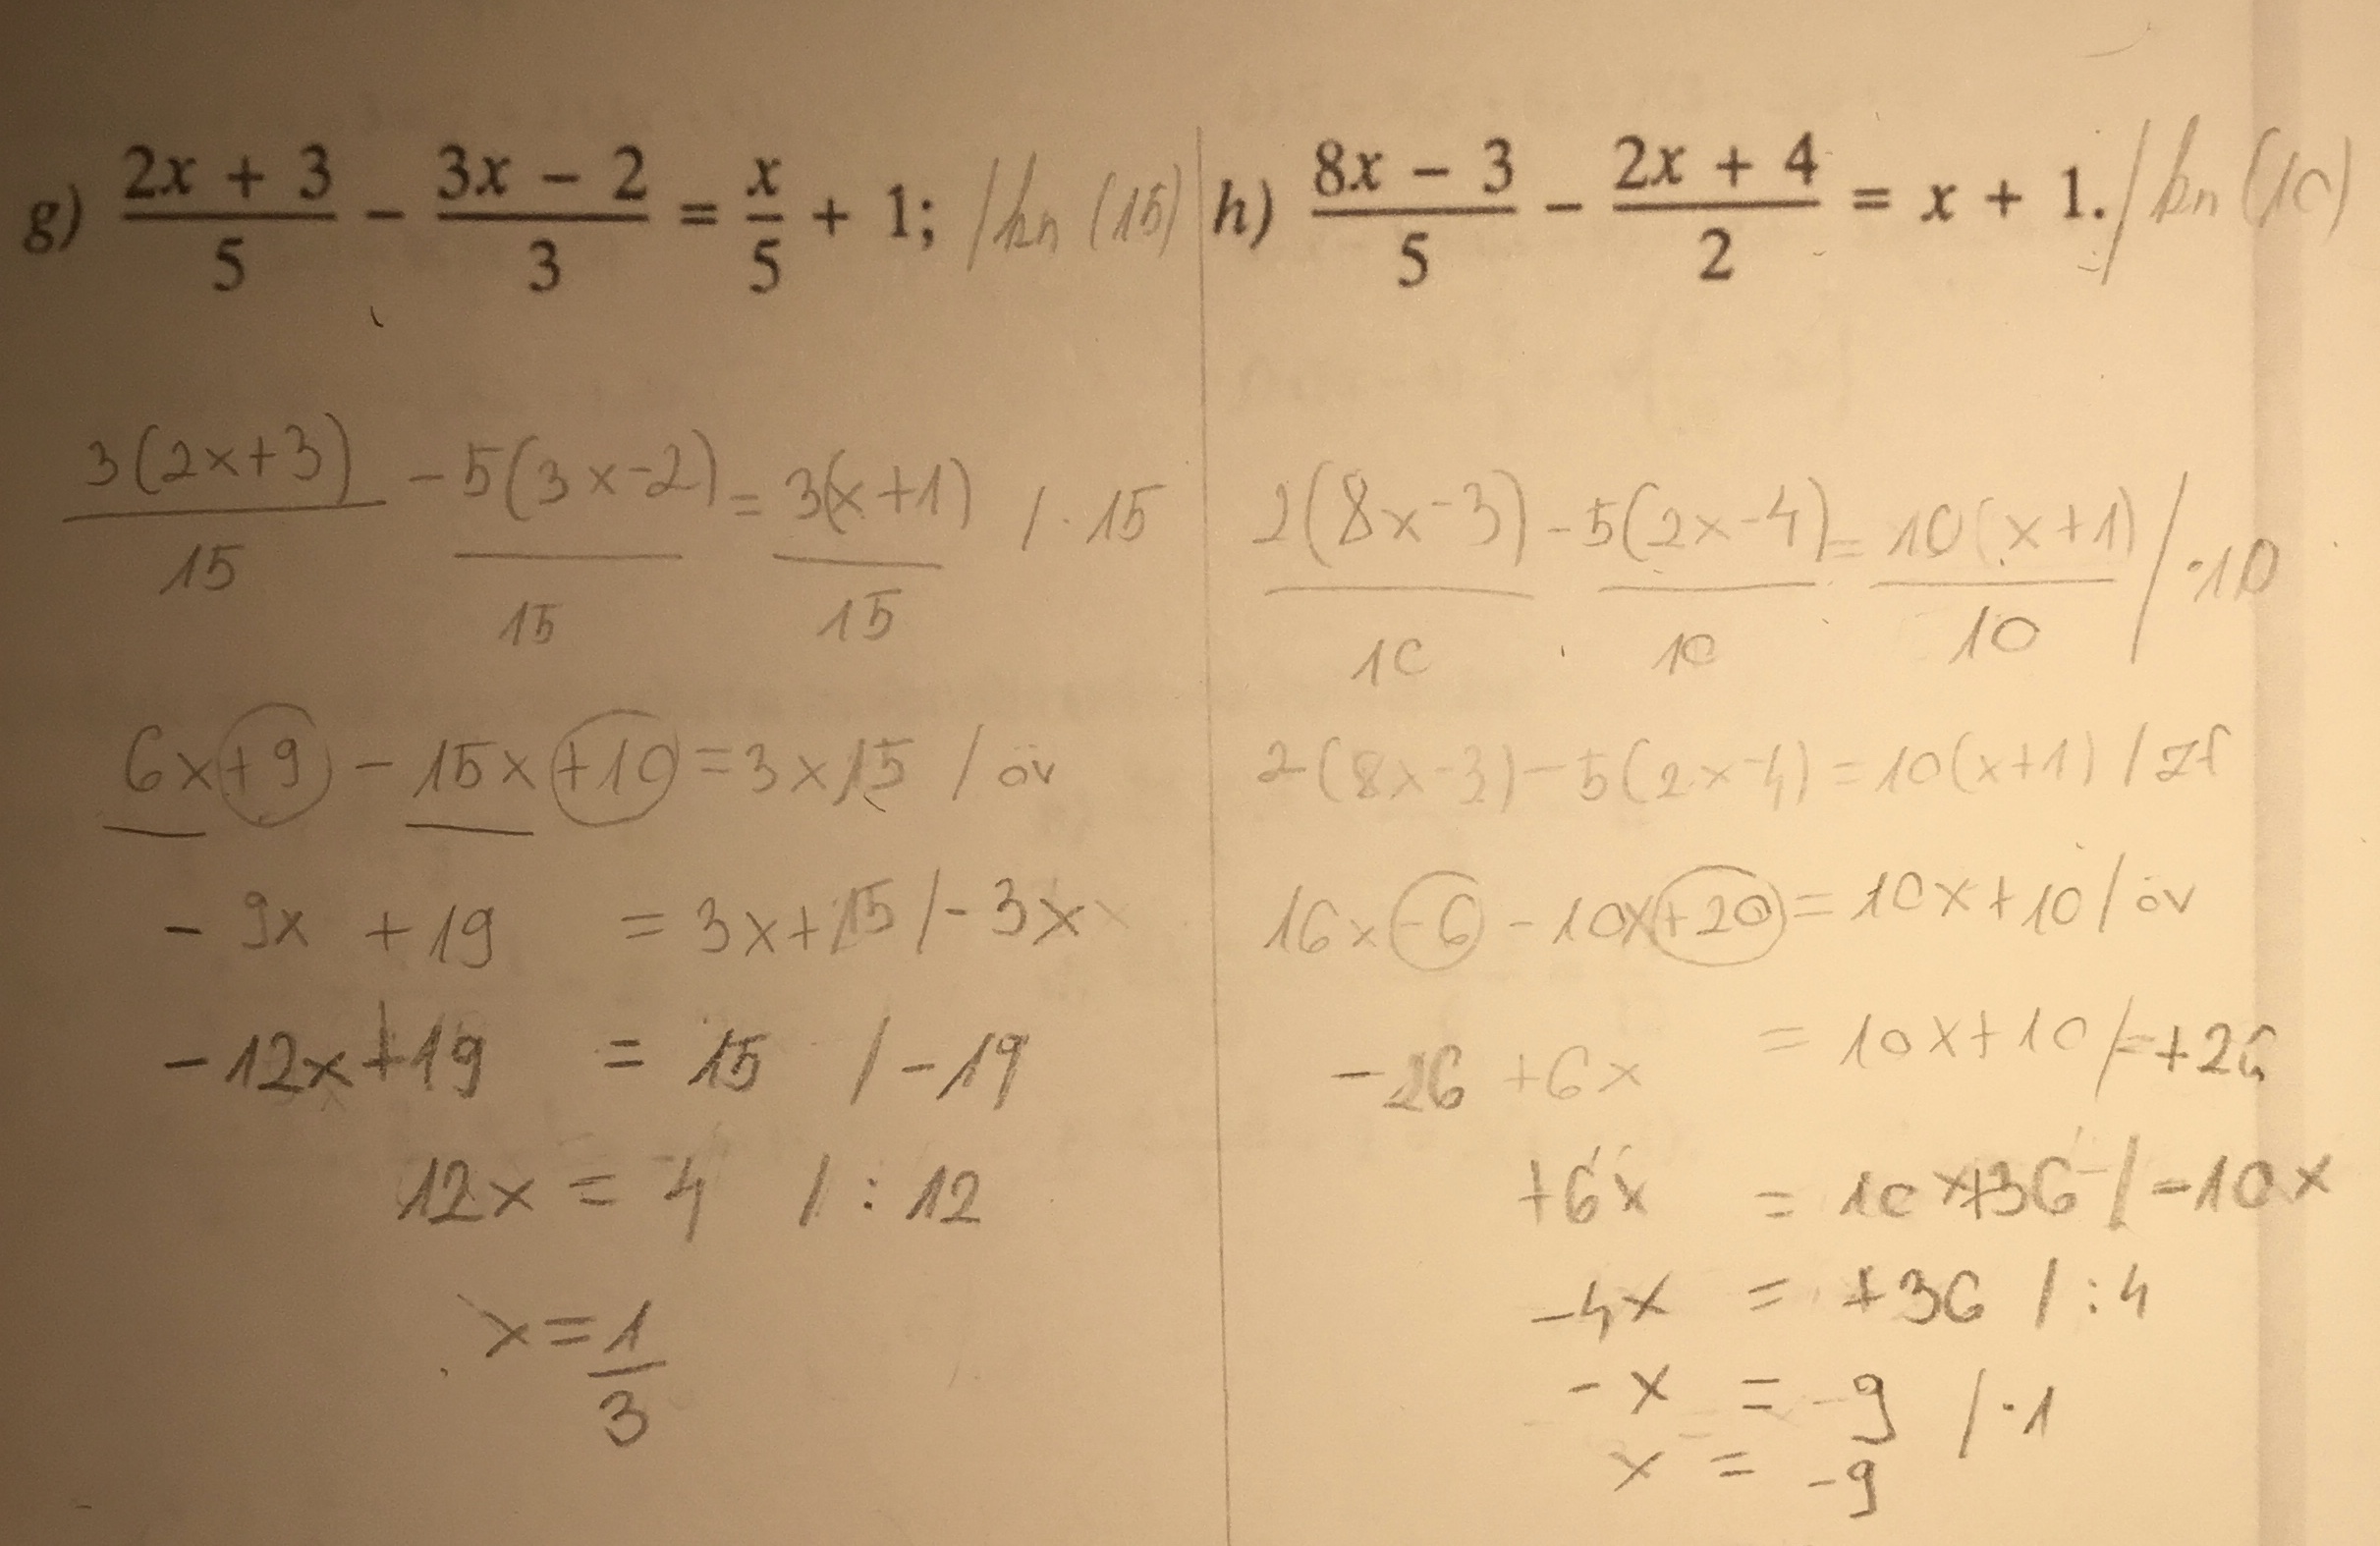 g) (2x + 3)/5 − (3x − 2)/3 = x/5 + 1; /kn (15)
3(2x+3)/15 − 5(3x−2)/15 = 3(x+1)/15 / · 15
6x +9 − 15x +10 = 3x 15 / öv
− 9x + 19 = 3x+15 / − 3x
− 12x + 19 = 15 / − 19
12x = 4 / : 12
x = 1/3
h) (8x − 3)/5 − (2x + 4)/2 = x + 1. / kn (10)
2(8x−3)/10 − 5(2x−4)/10 = 10(x+1)/10 / ·10
2(8x−3) − 5(2x−4) = 10(x+1) / zf
16x −6 − 10x +20 = 10x+10 / öv
− 26 + 6x = 10x+10 / +26
+6x = 10x+36 / −10x
−4x = +36 / : 4
− x = −9 / ·1
x = −9